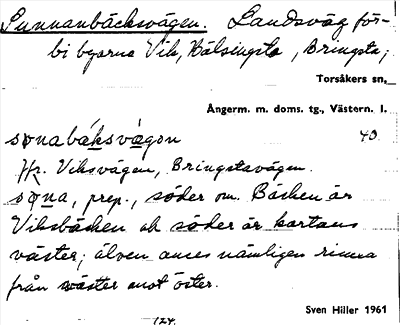 Sunnanbäcksvägen. Landsväg för-
bi byarna Vik, Hälsingsta, Bringsta;
Torsåkers sn,
Ångerm. m. doms. tg., Västern. l.
sǫnabáksvägon 40.
Jfr. Viksvägen, Bringstavägen.
sǫna, prep., söder om. Bäcken är
Viksbäcken ock söder är kartans
väster; älven anses nämligen rinna
från väster mot öster.
Sven Hiller 1961
124.